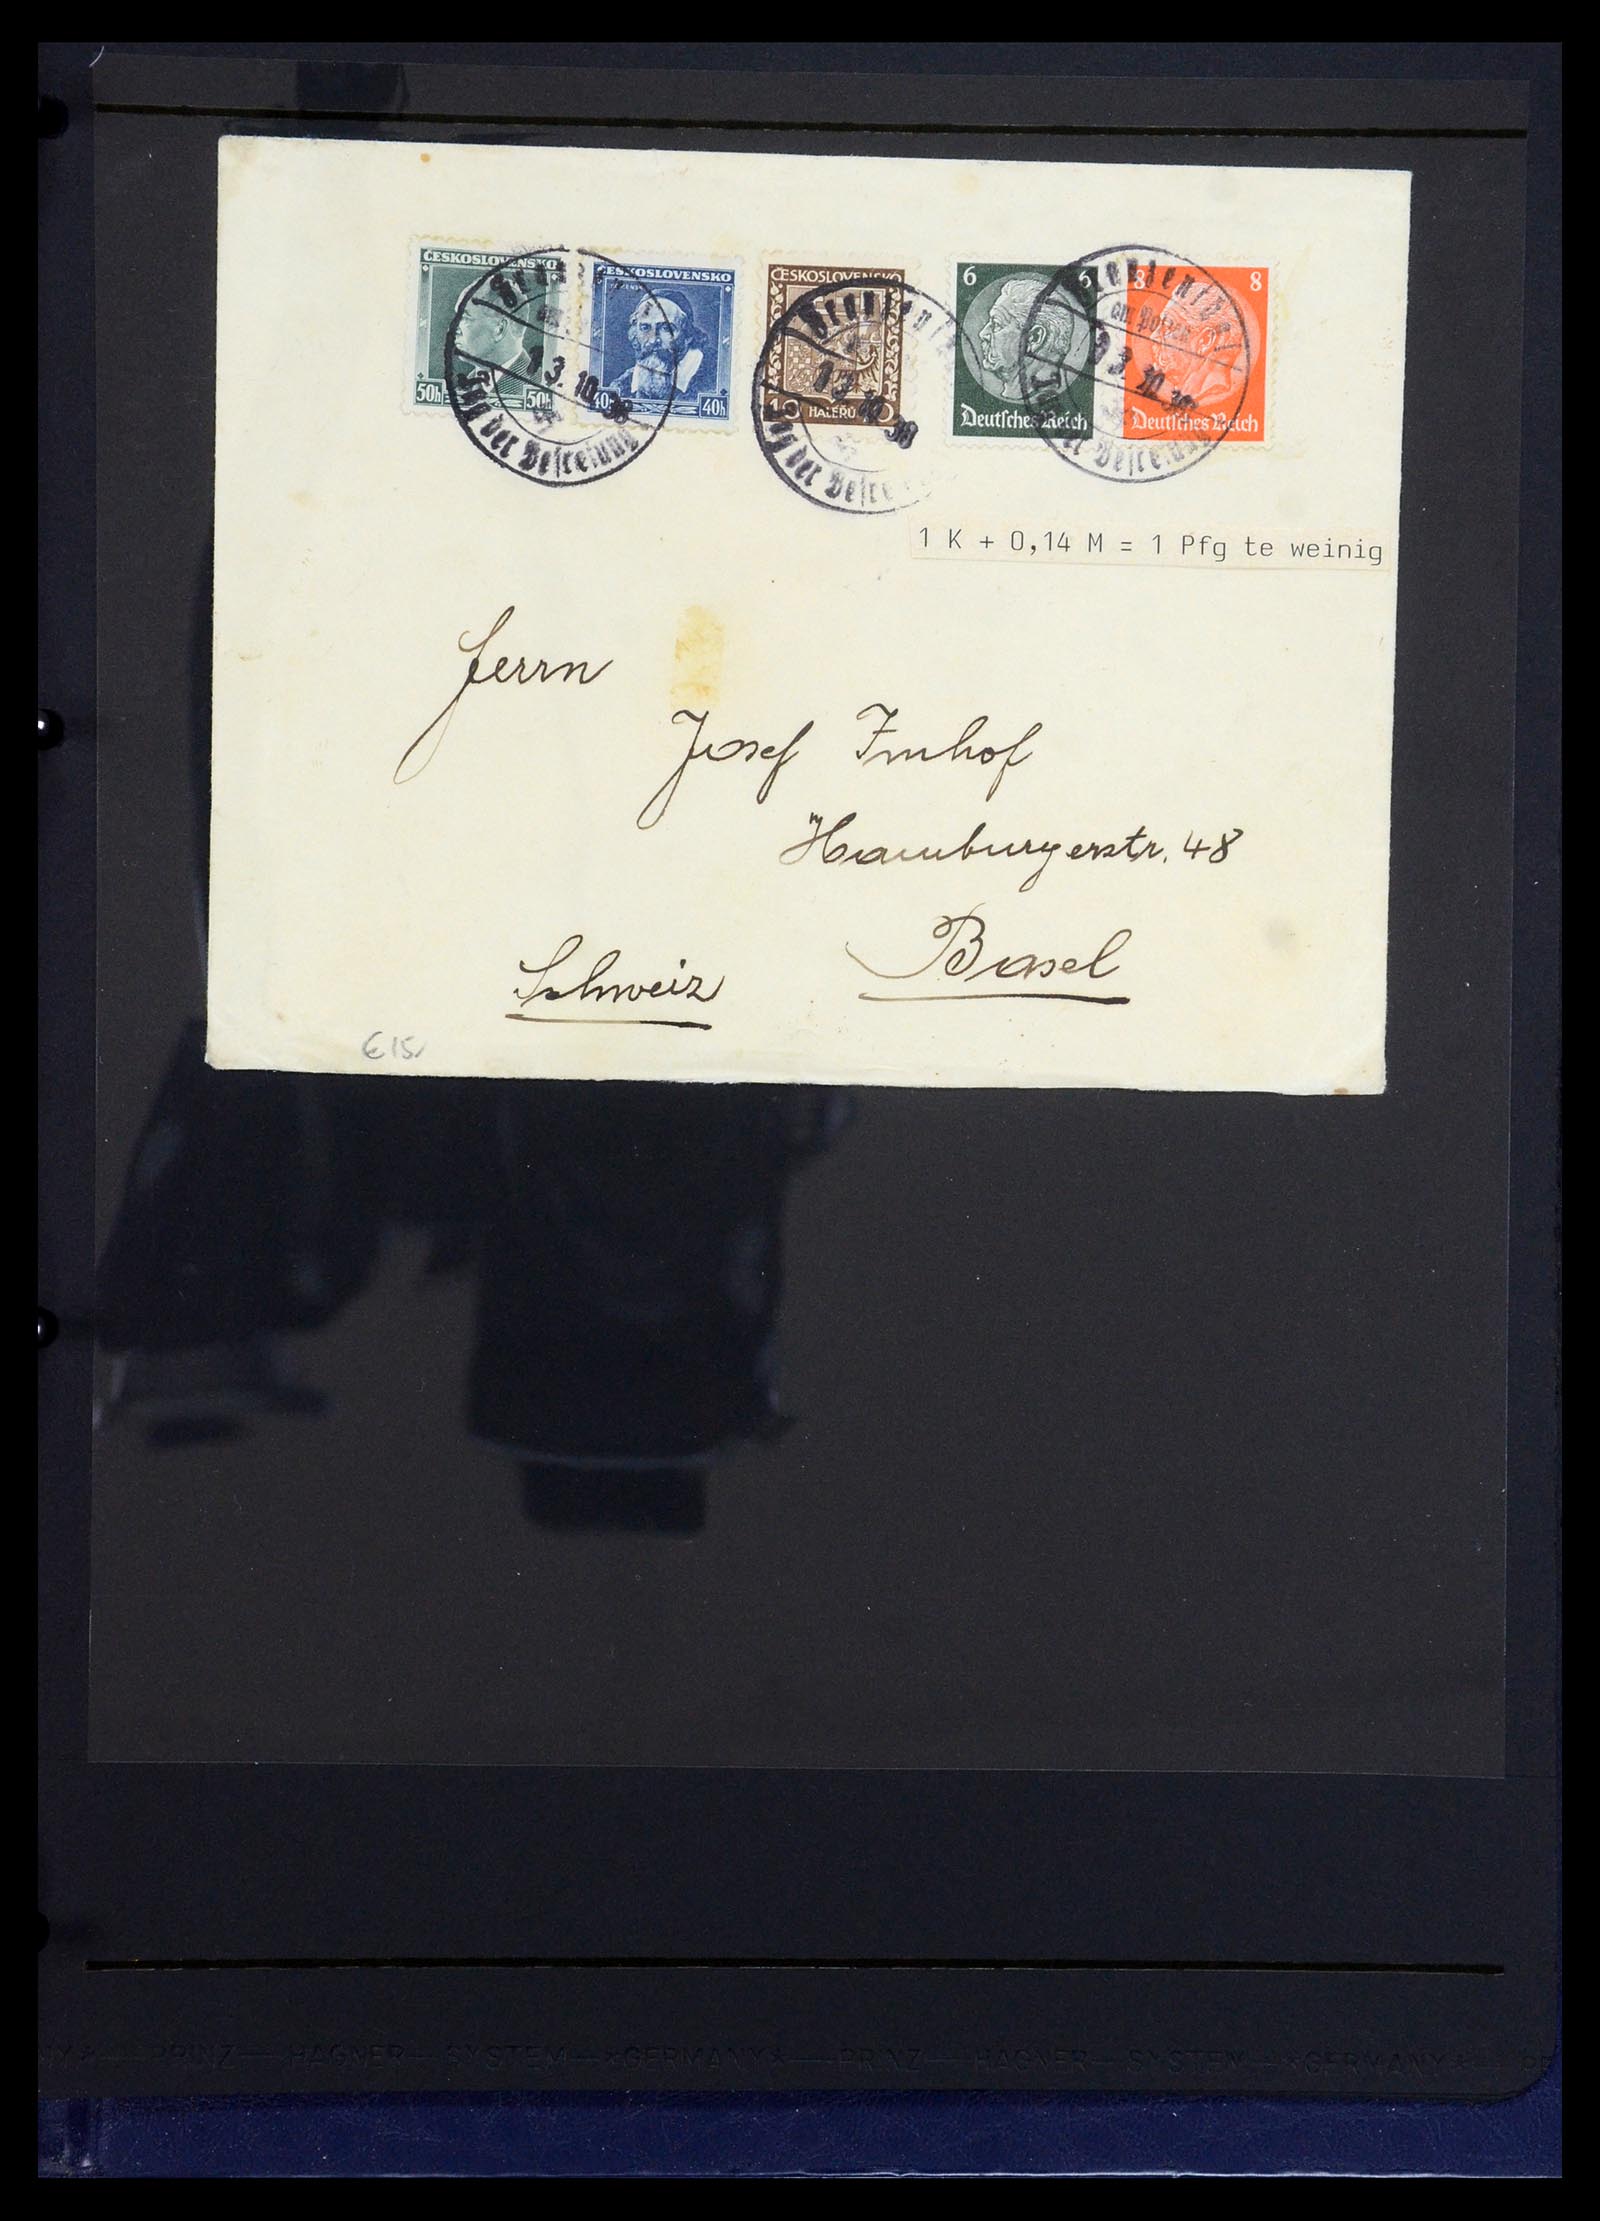 ČESKOSLOVENSKO
50h 50h
ČESKOSLOVENSKO
40h 40h
ČESKOSLOVENSKO
HALÉŘŮ
6 6
Deutsches Reich
8 8
Deutsches Reich
3. 10. 38
Tag der Befreiung
3. 10. 38
Tag der
3. 10. 38
der Befreiung
1 K + 0,14 M = 1 Pfg te weinig
Herrn
Josef Imhof
Hamburgerstr. 48
Basel
Schweiz
€15,
PRINZ — HAGNER — SYSTEM — *GERMANY* — PRINZ — HAGNER — SYSTEM — *GERMANY*